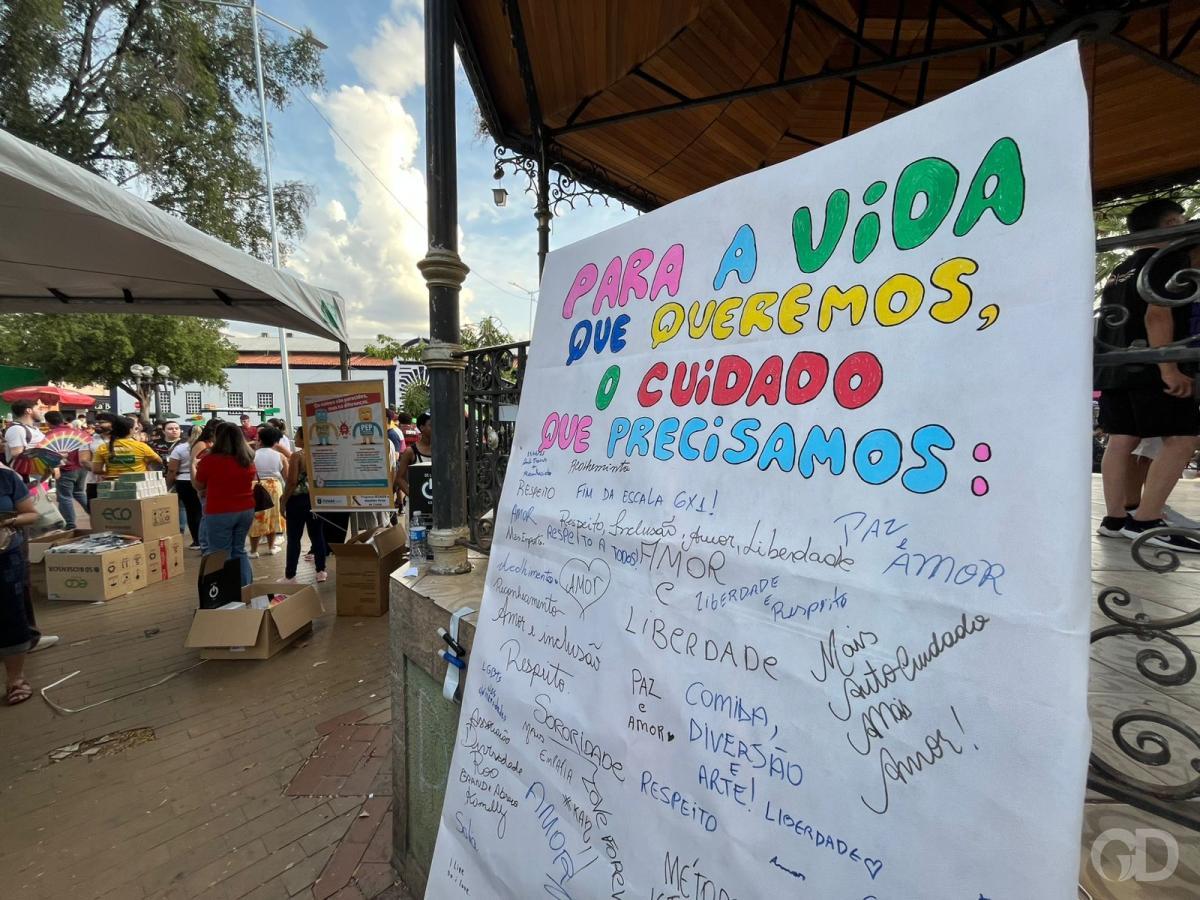 PARA A ViDA
QUE QUEREMOS,
O CUiDADO
QUE PRECiSAMOS:
Acolhemento
RESPEITO
FIM DA ESCALA 6X1!
AMOR
Respeito, Inclusão, Amor, Liberdade
PAZ
e
AMOR
RESPEITO A TODOS!
AMOR
e
LIBERDADE
LIBERDADE
e
Respeito
Acolhimento
AMOR
Amor e inclusão
Respeito.
Mais
AutoCuidado
Mais
Amor!
PAZ
e
AMOR
COMIDA,
DIVERSÃO
E
ARTE!
SORORIDADE
mais
EMPATIA
RESPEITO
LIBERDADE
Diversidade
Kamilly
AMOR!
Amor
PEP
eco
GD